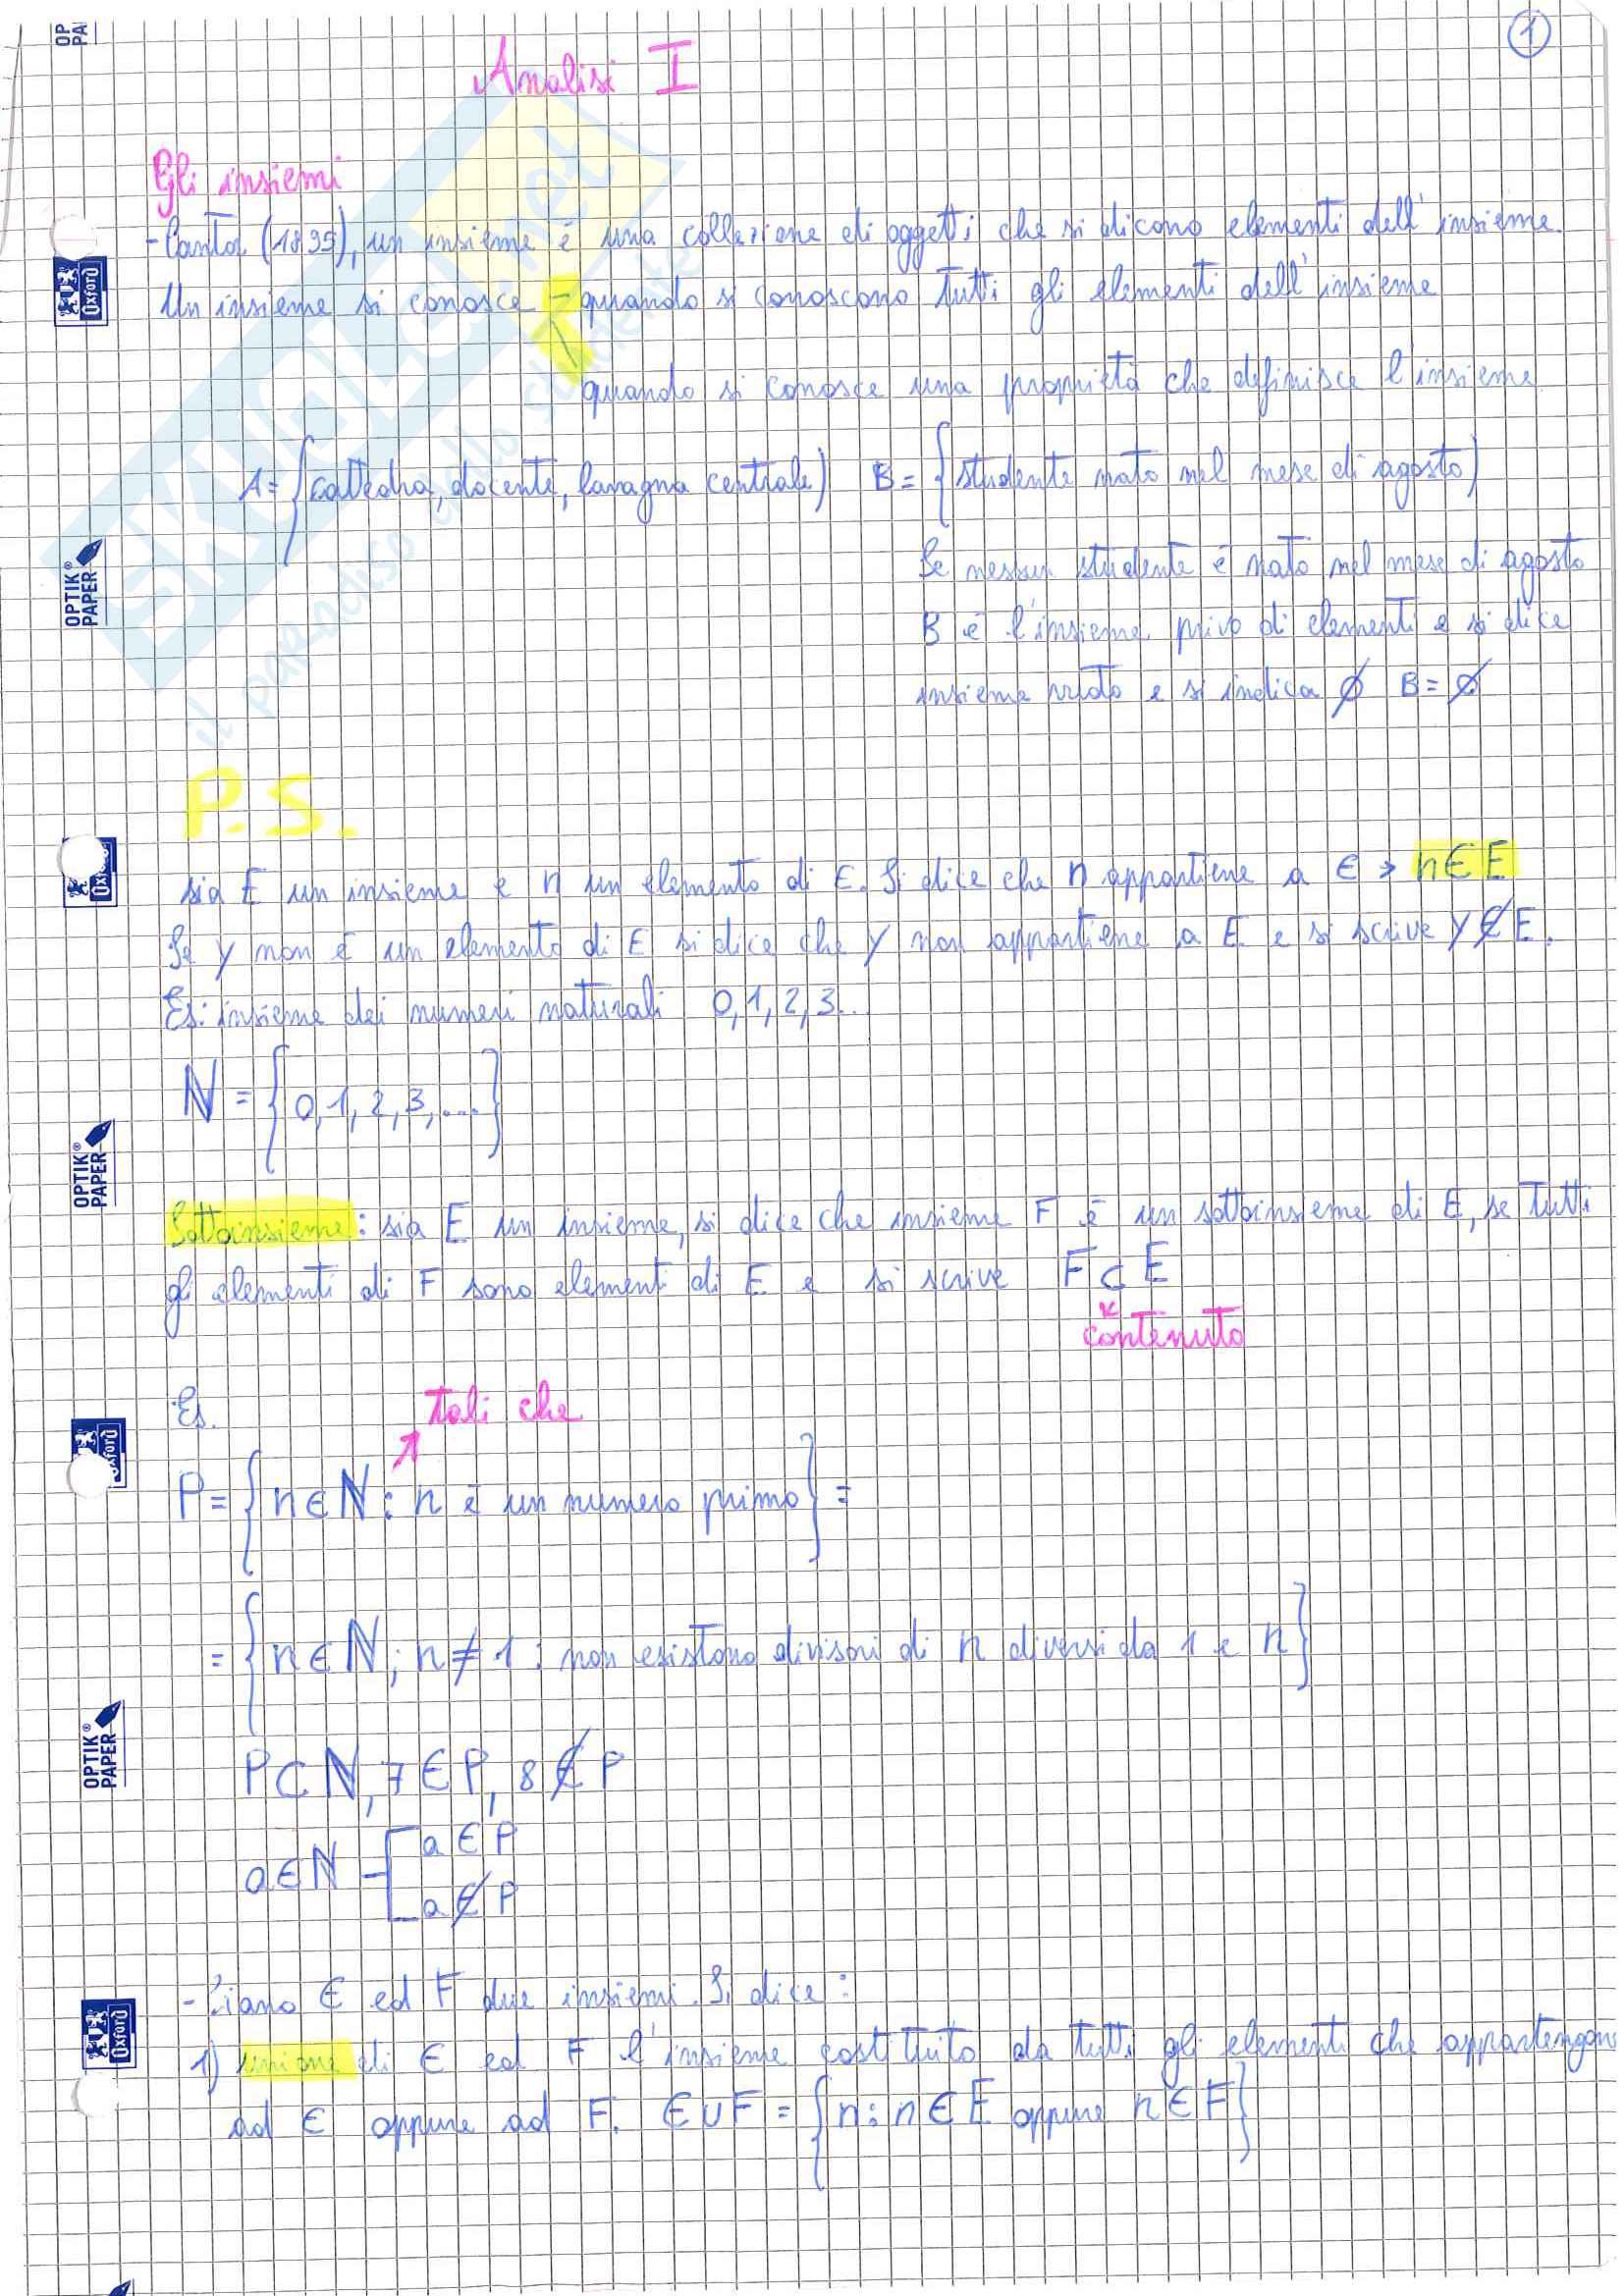 1
Analisi I
Gli insiemi
- Cantor (1895), un insieme è una collezione di oggetti che si dicono elementi dell'insieme.
Un insieme si conosce - quando si conoscono tutti gli elementi dell'insieme
quando si conosce una proprietà che definisce l'insieme
A = {cattedra, docente, lavagna centrale} B = {studente nato nel mese di agosto}
Se nessun studente è nato nel mese di agosto
B è l'insieme privo di elementi e si dice
insieme vuoto e si indica ∅ B = ∅
P.S.
sia E un insieme e n un elemento di E. Si dice che n appartiene a E > n ∈ E
Se y non è un elemento di E si dice che y non appartiene a E e si scrive y ∉ E.
Es: insieme dei numeri naturali 0, 1, 2, 3...
ℕ = {0, 1, 2, 3, ....}
Sottoinsieme: sia E un insieme, si dice che insieme F è un sottoinsieme di E, se tutti
gli elementi di F sono elementi di E e si scrive F ⊂ E
contenuto
Es. tali che
P = {n ∈ ℕ : n è un numero primo} =
= {n ∈ ℕ; n ≠ 1 : non esistono divisori di n diversi da 1 e n}
P ⊂ ℕ, 7 ∈ P, 8 ∉ P
a ∈ P
a ∈ ℕ
a ∉ P
- Siano E ed F due insiemi. Si dice:
1) unione di E ed F l'insieme costituito da tutti gli elementi che appartengono
ad E oppure ad F. E ∪ F = {n : n ∈ E oppure n ∈ F}
SKUOLA.net
il paradiso dello studente
OPTIK® PAPER
Oxford
OPTIK® PAPER
Oxford
OPTIK® PAPER
Oxford
OPTIK® PAPER
Oxford